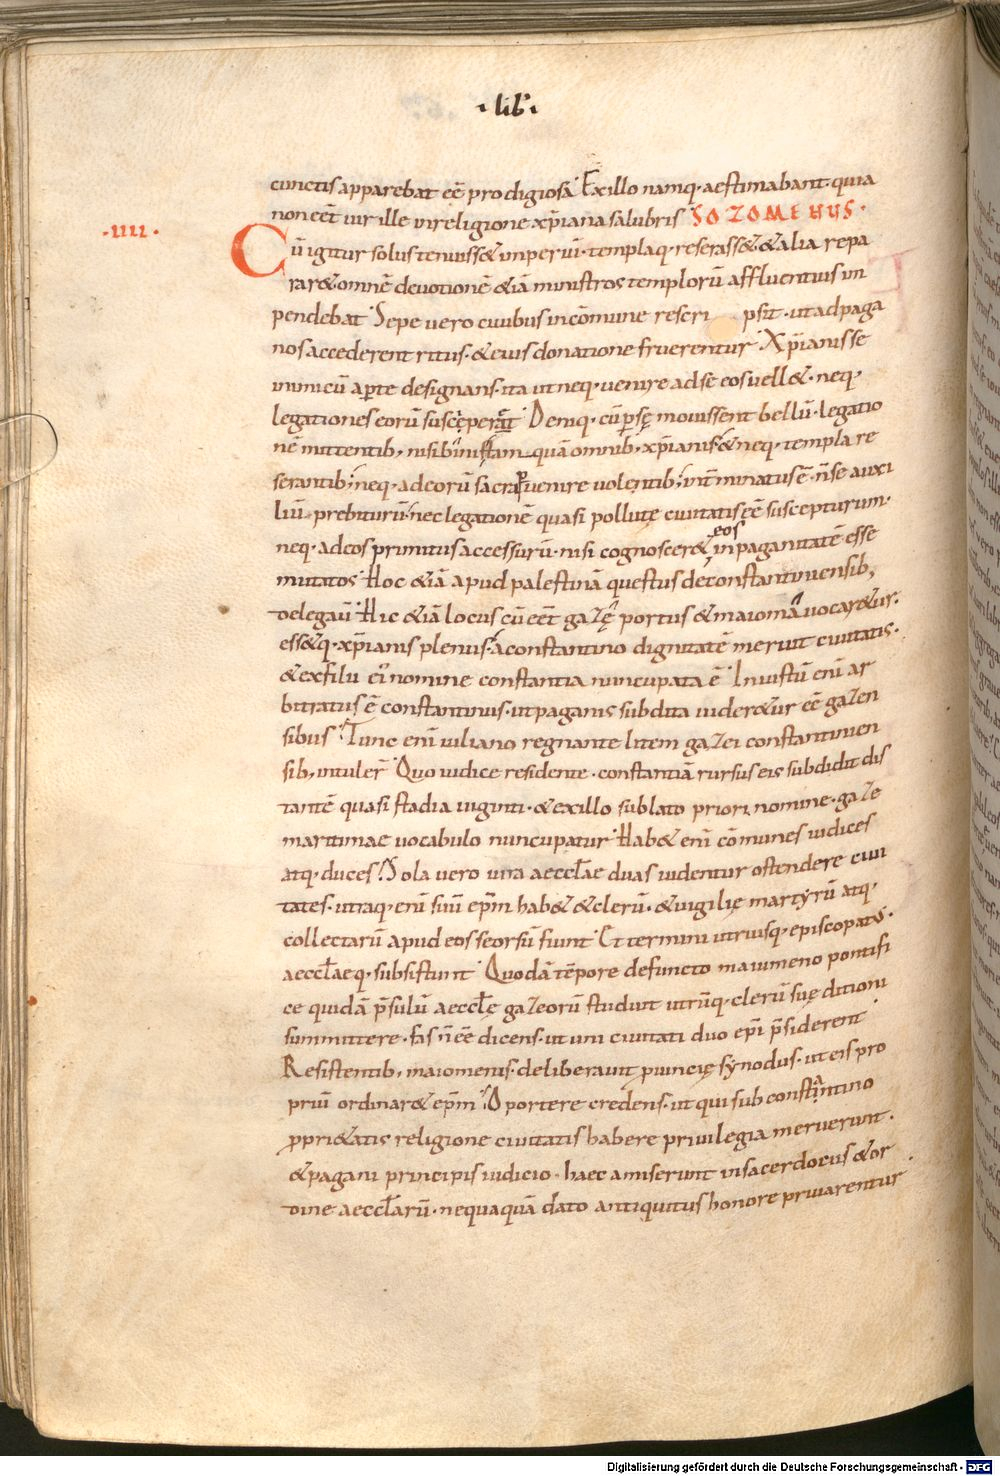 · lib̄ ·
cunctis apparebat eē prodigiosa. Ex illo namq; aestimabant quia
non eēt vir ille in religione xp̄iana salubris. SOZOMENUS.
·IIII·
Cū igitur solus tenuiss& imperiū· templaq; reserass& & alia repa
rar& omnē devotionē &iā ministros templorū affluentius in
pendebat. Sepe vero civibus in cōmune rescri psit· ut ad paga
nos accederent ritus· & eius donatione fruerentur. Xp̄ianis se
inimicū aperte designans· ita ut neq; venire ad se eos vell&· neq;
legationes eorū susciperet. Deniq; cū persę movissent bellū· legatio
nē mittentib; nisibinis tam quā omnib; xp̄ianis· & neq; templa re
serantib; neq; ad eorū sacra pervenire volentib; int̄minatus ē· n̄ se auxi
liū prebiturū· nec legationē quasi pollutę civitatis eē suscepturum·
neq; ad eos primitus accessurū· nisi cognoscer& eos in paganitatē esse
mutatos. Hoc &iā apud palestinā questus de constantiniensib;
delegavī. Hic &iā locus cū eēt gazę portus & maioma vocar&ur·
ess&q; xp̄ianis plenus· a constantino dignitatē meruit civitatis·
& ex filii ei' nomine constantia nuncupata ē. Iniustū enī ar
bitratus ē constantinus· ut paganis subdita vider&ur eē gazen
sibus. Tunc enī iuliano regnante litem gazei constantinien
sib; intuler̄. Quo iudice residente· constantiā rursus eis subdidit dis
tantē quasi stadia viginti· & ex illo sublato priori nomine· gaze
maritimae vocabulo nuncupatur. Hab& enī cōmunes iudices
atq; duces. Sola vero iura aeccl̄ae duas videntur ostendere civi
tates· utraq; enī suū ep̄m hab& & clerū· & vigilię martyrū atq;
collectarū apud eos seorsū fiunt. Et termini utriusq; episcopatus·
aeccl̄aeq; subsistunt. Quodā tēpore defuncto maiumeno pontifi
ce quidā p̄sulū aeccl̄ę gazeorū studuit utrūq; clerū suę ditioni
summittere· fas n̄ eē dicens· ut uni civitati duo ep̄i p̄siderent
Resistentib; maiomenis· deliberavit provincię synodus· ut eis pro
priū ordinar& ep̄m. Oportere credens· ut qui sub constantino
propri&atis religione civitatis habere privilegia meruerunt·
& pagani principis iudicio· haec amiserunt in sacerdotiis & or
dine aeccl̄arū· nequaquā dato antiquitus honore privarentur
Digitalisierung gefördert durch die Deutsche Forschungsgemeinschaft - DFG